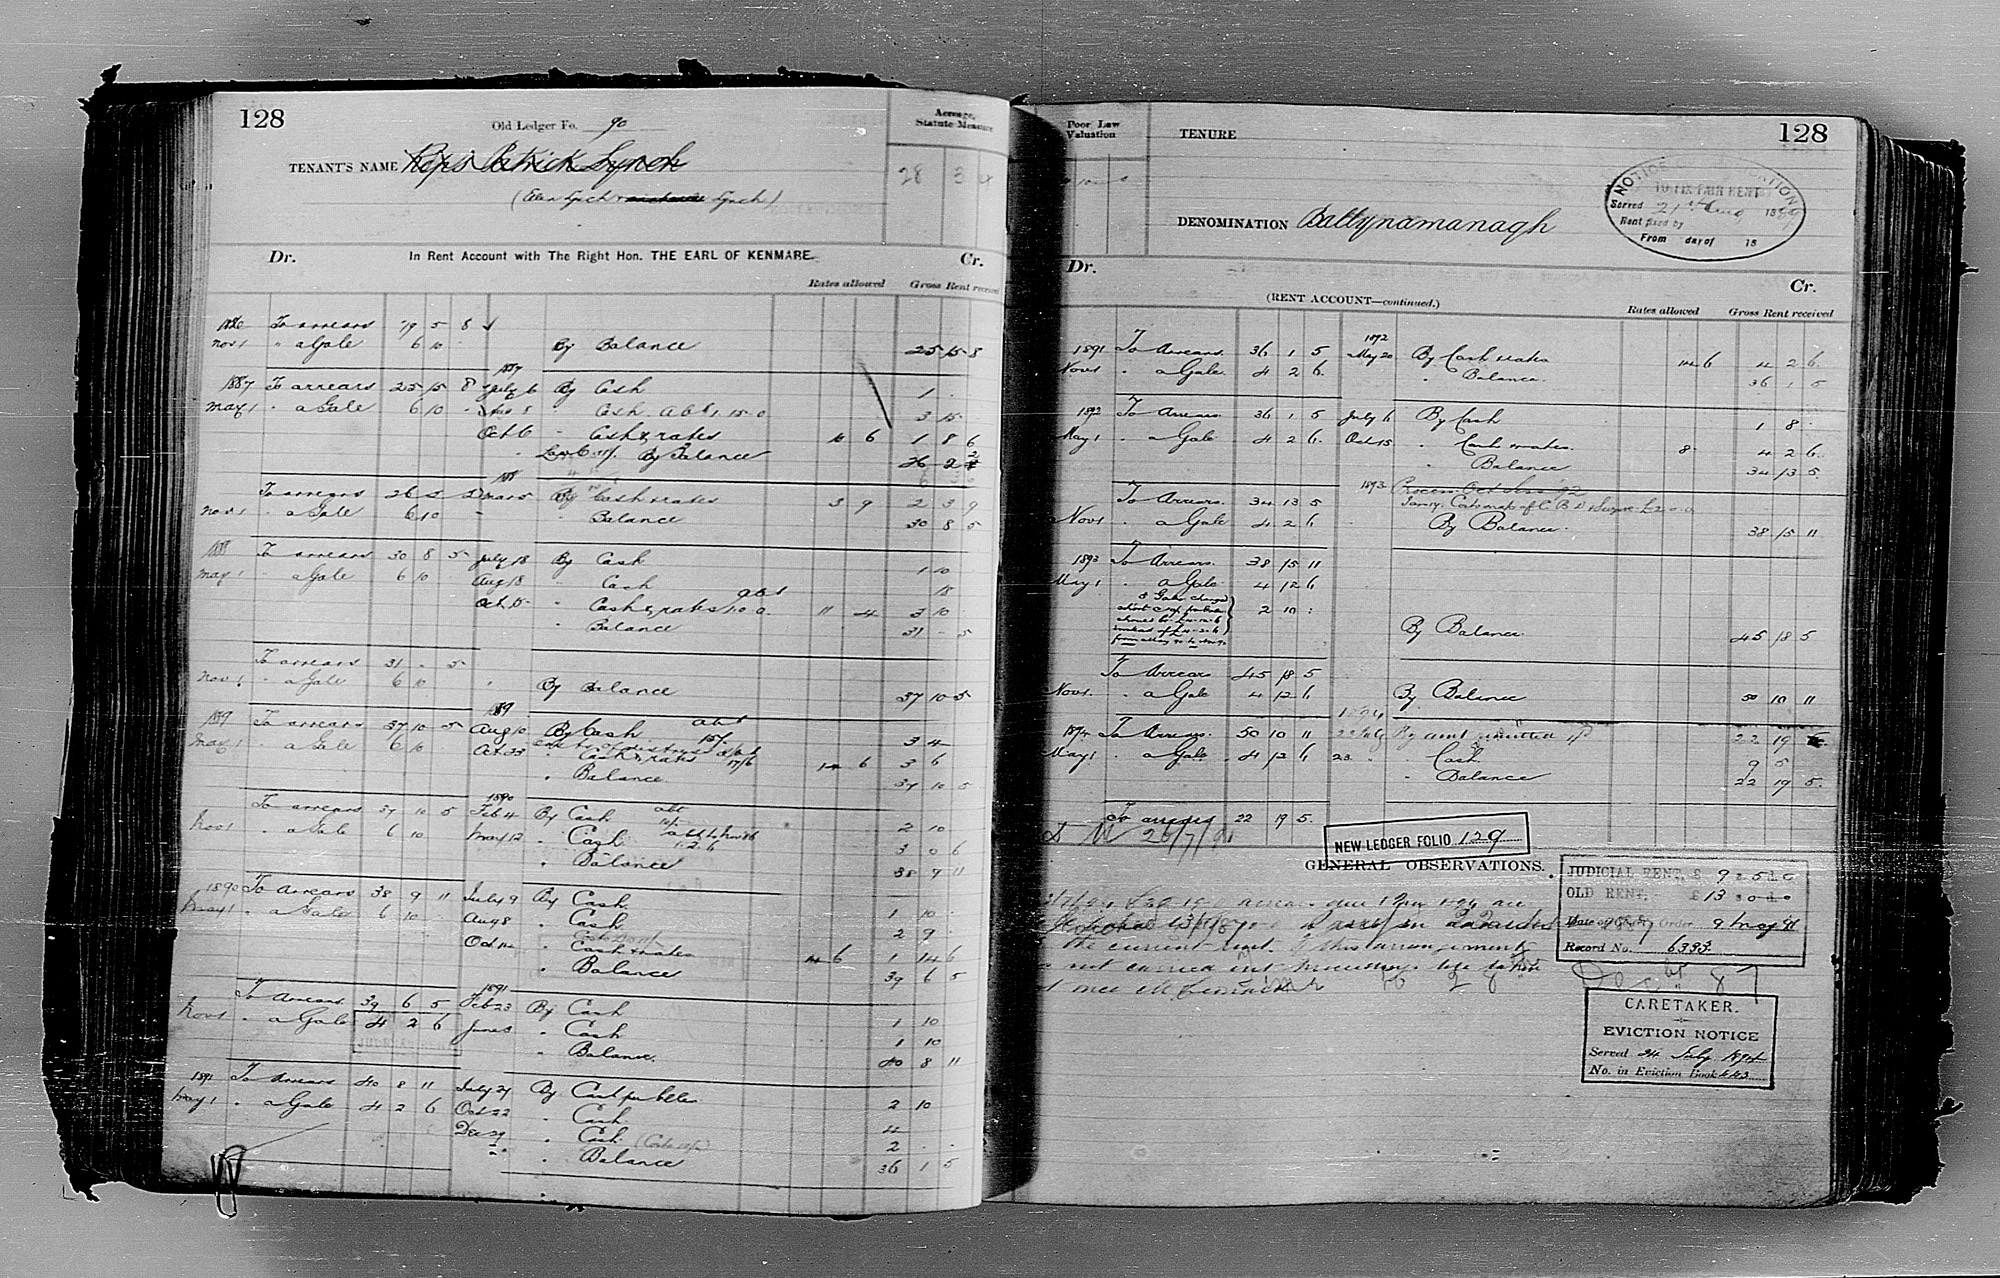 128
Old Ledger Fo. 90
Acreage, Statute Measure
TENANT'S NAME Reps Patrick Lynch
28 3
(Ellen Lynch Lynch)
Dr. In Rent Account with The Right Hon. THE EARL OF KENMARE. Cr.
Rates allowed Gross Rent received
1886 To arrears 19 5 8
Nov 1 " a Gale 6 10 By Balance 25 15 8
1887
1887 To arrears 25 15 8 July 6 By Cash 1
May 1 " a Gale 6 10 Aug 8 " Cash abt 1.15.0 3 15
Oct 6 " Cash & rates 10 6 1 8 6
By Balance 26 2 2
188
To arrears 26 2 2 Mar 5 By Cash & rates 3 9 2 3 9
Nov 1 " a Gale 6 10 " Balance 30 8 5
1888 To arrears 30 8 5 July 18 By Cash 1 10
May 1 " a Gale 6 10 Aug 18 " Cash 18
Oct 15 " Cash & rates abt 1.0.0 11 4 3 10
" Balance 31 - 5
To arrears 31 - 5
Nov 1 " a Gale 6 10 By Balance 37 10 5
1889
1889 To arrears 37 10 5 Aug 10 By Cash abt 15/ 3 4
May 1 " a Gale 6 10 Oct 23 " Cash & rates 17/6 14 6 3 6
" Balance 37 10 5
1890
To arrears 37 10 5 Feb 4 By Cash abt 10/ 2 10
Nov 1 " a Gale 6 10 May 12 " Cash 1.2.6 3 0 6
" Balance 38 9 11
1890 To Arrears 38 9 11 July 9 By Cash 1 10
May 1 " a Gale 6 10 Aug 8 " Cash 2 9
Oct 14 " Cash & rates 14 6 1 14 6
" Balance 39 6 5
1891
To Arrears 39 6 5 Feb 23 By Cash 1 10
Nov 1 " a Gale 4 2 6 June 8 " Cash 1 10
" Balance 40 8 11
1891 To Arrears 40 8 11 July 27 By Cash per 2 10
May 1 " a Gale 4 2 6 Oct 22 " Cash 4
Dec 29 " Cash 2
" Balance 36 1 5
Poor Law Valuation
TENURE
128
NOTICE OF APPLICATION
TO FIX FAIR RENT
Served 21st Aug 18
Rent fixed by
From day of 18
DENOMINATION Ballynamanagh
Dr. Cr.
(RENT ACCOUNT—continued.)
Rates allowed Gross Rent received
1892
1891 To Arrears 36 1 5 May 20 By Cash & rates 14 6 4 2 6
Nov 1 " a Gale 4 2 6 " Balance 36 1 5
1892 To Arrears 36 1 5 July 6 By Cash 1 8
May 1 " a Gale 4 2 6 Oct 15 " Cash & rates 8 4 2 6
" Balance 34 13 5
1893
To Arrears 34 13 5
Nov 1 " a Gale 4 2 6 By Balance 38 15 11
1893 To Arrears 38 15 11
May 1 " a Gale 4 12 6
2 10
By Balance 45 18 5
To Arrears 45 18 5
Nov 1 " a Gale 4 12 6 By Balance 50 10 11
1894
1894 To Arrears 50 10 11 23 July By amt remitted 22 19
May 1 " a Gale 4 12 6 23 " Cash 9 5
" Balance 22 19 5
To arrears 22 19 5
NEW LEDGER FOLIO 129
GENERAL OBSERVATIONS.
JUDICIAL RENT, £ 9 5 0
OLD RENT, £ 13 0 0
Date of Order 9 May 91
Record No. 6393
the current rent. If this arrangement
not carried out
CARETAKER.
EVICTION NOTICE
Served 24 July 1894
No. in Eviction Book